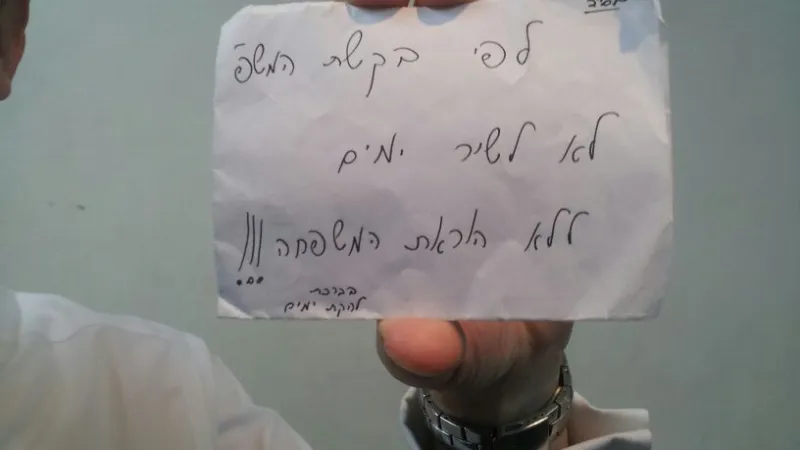 לפי בקשת המשפ'
לא לשיר ימים
ללא הוראת המשפחה !!!
בברכת
להקת ימים